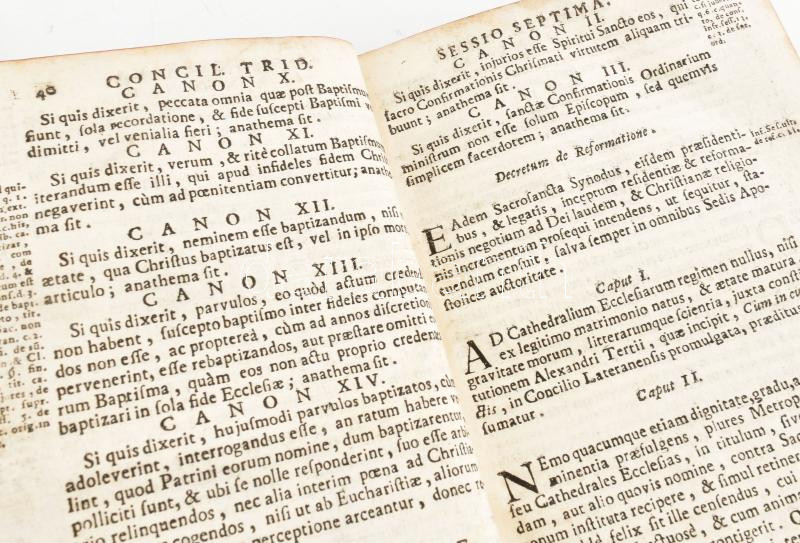 40
CONCIL. TRID.
CANON X.
Si quis dixerit, peccata omnia quæ post Baptismum
fiunt, sola recordatione, & fide suscepti Baptismi v
dimitti, vel venialia fieri; anathema sit.
CANON XI.
Si quis dixerit, verum, & ritè collatum Baptismum
iterandum esse illi, qui apud infideles fidem Chris
negaverint, cùm ad pœnitentiam convertitur; anathe
ma sit.
CANON XII.
Si quis dixerit, neminem esse baptizandum, nisi
ætate, qua Christus baptizatus est, vel in ipso mort
articulo; anathema sit.
CANON XIII.
Si quis dixerit, parvulos, eo quòd actum credend
non habent, suscepto baptismo inter fideles computan
dos non esse, ac propterea, cùm ad annos discretion
pervenerint, esse rebaptizandos, aut præstare omitti e
rum Baptisma, quàm eos non actu proprio credentes
baptizari in sola fide Ecclesiæ; anathema sit.
CANON XIV.
Si quis dixerit, hujusmodi parvulos baptizatos, cùm
adoleverint, interrogandos esse, an ratum habere ve
lint, quod Patrini eorum nomine, dum baptizarentur,
polliciti sunt, & ubi se nolle responderint, suo esse arbi
rio relinquendos, nec alia interim pœna ad Christia
cogendos, nisi ut ab Eucharistiæ, aliorum
perceptione arceantur, donec re
SESSIO SEPTIMA.
CANON II.
Si quis dixerit, injurios esse Spiritui Sancto eos, qui
sacro Confirmationis Chrismati virtutem aliquam tri-
buunt; anathema sit.
CANON III.
Si quis dixerit, sanctæ Confirmationis Ordinarium
ministrum non esse solum Episcopum, sed quemvis
simplicem sacerdotem; anathema sit.
Decretum de Reformatione.
EAdem Sacrosancta Synodus, eisdem præsidenti-
bus, & legatis, inceptum residentiæ & reforma-
tionis negotium ad Dei laudem, & Christianæ religio-
nis incrementum prosequi intendens, ut sequitur, sta-
tuendum censuit, salva semper in omnibus Sedis Apo-
stolicæ auctoritate.
Caput I.
AD Cathedralium Ecclesiarum regimen nullus, nisi
ex legitimo matrimonio natus, & ætate matura
gravitate morum, litterarumque scientia, juxta const
tutionem Alexandri Tertii, quæ incipit, Cùm in cu
ctis, in Concilio Lateranensi promulgata, præditus
sumatur.
Caput II.
NEmo quacumque etiam dignitate, gradu, a
minentia præfulgens, plures Metropo
seu Cathedrales Ecclesias, in titulum, sive
dam, aut alio quovis nomine, contra Sac
nonum instituta recipere, & simul retiner
dd felix sit ille censendus, cui
tuosè, & cum anima